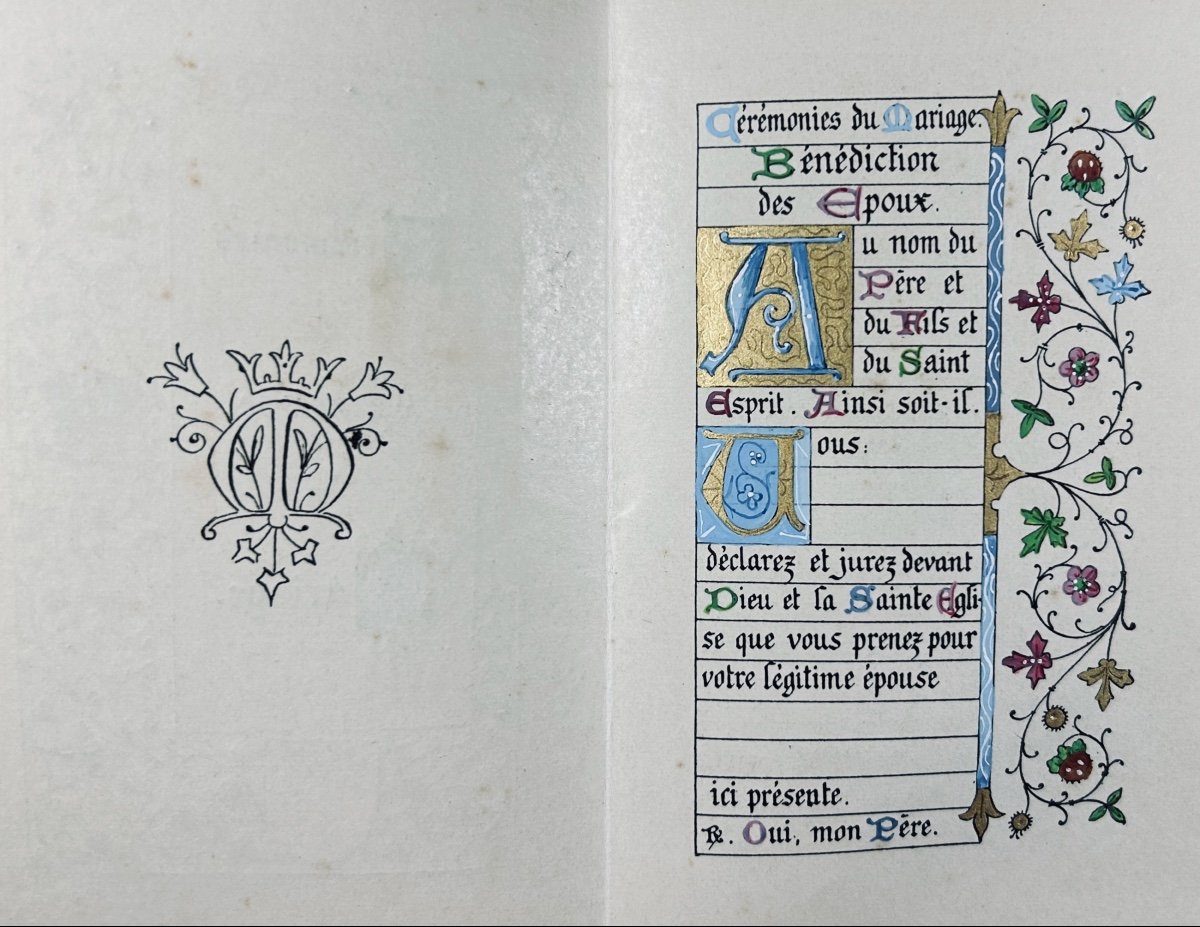 M
Cérémonies du Mariage.
Bénédiction
des Epoux.
Au nom du
Père et
du Fils et
du Saint
Esprit. Ainsi soit-il.
Vous:
déclarez et jurez devant
Dieu et la Sainte Egli-
se que vous prenez pour
votre légitime épouse
ici présente.
℟. Oui, mon Père.